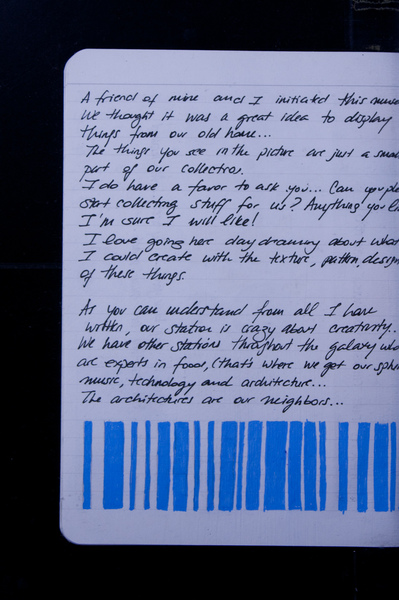 A friend of mine and I initiated this
We thought it was a great idea to display
things from our old home...
The things you see in the picture are just a
part of our collection.
I do have a favor to ask you... Can you
start collecting stuff for us? Anything you
I'm sure I will like!
I love going here day dreaming about what
I could create with the texture, pattern, design
of these things.
As you can understand from all I have
written, our station is crazy about creativity.
We have other stations throughout the galaxy
are experts in food, (that's where we get our
music, technology and architecture...
The architectures are our neighbors...